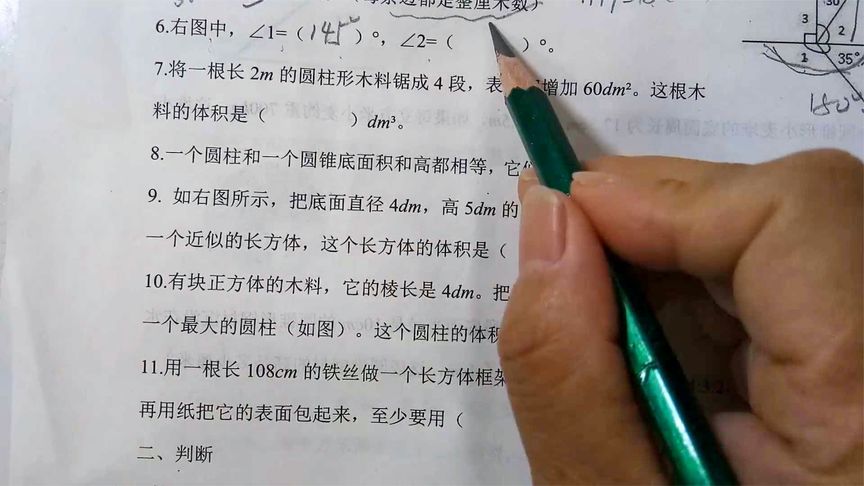 都是整厘米数)
6.右图中，∠1=（145°）°，∠2=（ ）°。
3 30 2
1 35°
180°
7.将一根长 2m 的圆柱形木料锯成 4 段，表 增加 60dm²。这根木
料的体积是（ ）dm³。
8.一个圆柱和一个圆锥底面积和高都相等，它
9. 如右图所示，把底面直径 4dm，高 5dm 的
一个近似的长方体，这个长方体的体积是（
10.有块正方体的木料，它的棱长是 4dm。把
一个最大的圆柱（如图）。这个圆柱的体积
11.用一根长 108cm 的铁丝做一个长方体框架
再用纸把它的表面包起来，至少要用（
二、判断